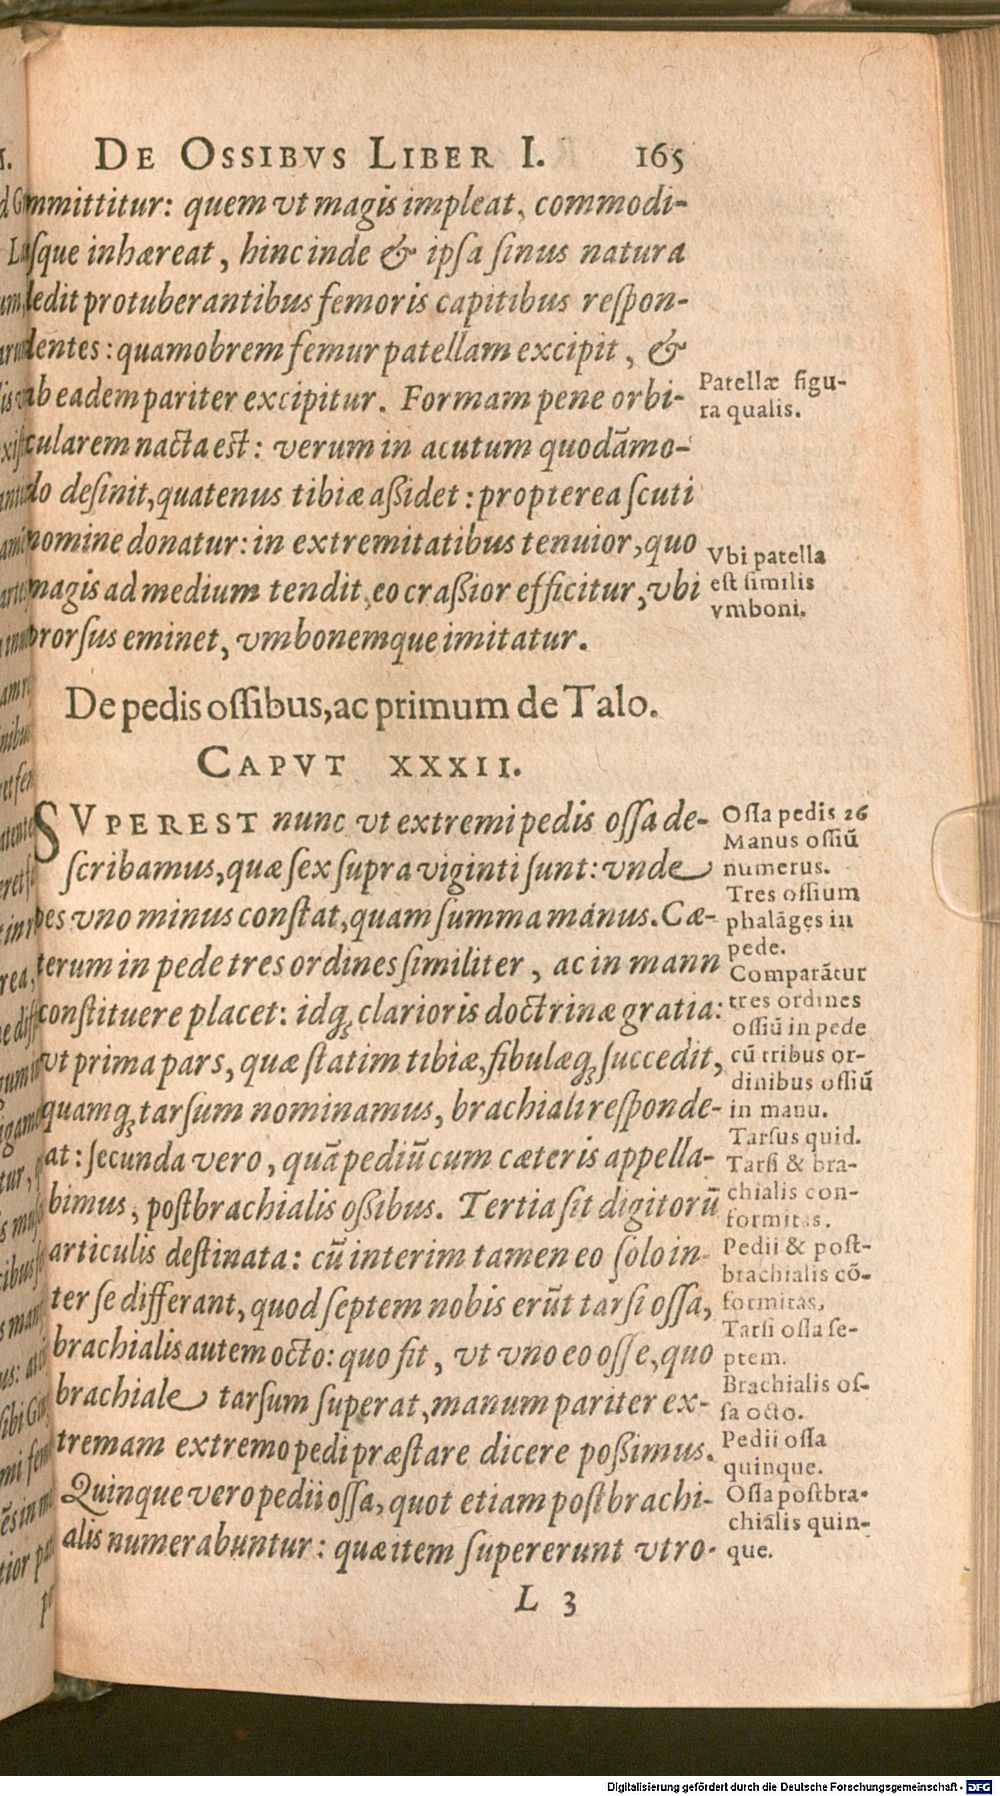 DE OSSIBVS LIBER I. 165
mmittitur: quem vt magis impleat, commodi-
ſque inhæreat, hinc inde & ipſa ſinus natura
dedit protuberantibus femoris capitibus reſpon-
dentes: quamobrem femur patellam excipit, &
ab eadem pariter excipitur. Formam pene orbi-
cularem nacta est: verum in acutum quodāmo-
do deſinit, quatenus tibiæ aßidet: propterea ſcuti
nomine donatur: in extremitatibus tenuior, quo
magis ad medium tendit, eo craßior efficitur, vbi
prorſus eminet, vmbonemque imitatur.
Patellæ figu-
ra qualis.
Vbi patella
est ſimilis
vmboni.
De pedis oſſibus, ac primum de Talo.
CAPVT XXXII.
SVPEREST nunc vt extremi pedis oſſa de-
ſcribamus, quæ ſex ſupra viginti ſunt: vnde
pes vno minus conſtat, quam ſumma manus. Cæ-
terum in pede tres ordines ſimiliter, ac in mann
conſtituere placet: idq; clarioris doctrinæ gratia:
vt prima pars, quæ ſtatim tibiæ, fibulæq; ſuccedit,
quamq; tarſum nominamus, brachiali reſponde-
at: ſecunda vero, quā pediū cum cæteris appella-
bimus, poſtbrachialis oßibus. Tertia ſit digitorū
articulis deſtinata: cū interim tamen eo ſolo in-
ter ſe differant, quod ſeptem nobis erūt tarſi oſſa,
brachialis autem octo: quo fit, vt vno eo oſſe, quo
brachiale tarſum ſuperat, manum pariter ex-
tremam extremo pedi præſtare dicere poßimus.
Quinque vero pedii oſſa, quot etiam poſtbrachi-
alis numerabuntur: quæ item ſupererunt vtro-
Oſſa pedis 26
Manus oſſiū
numerus.
Tres oſſium
phalāges in
pede.
Comparātur
tres ordines
oſſiū in pede
cū tribus or-
dinibus oſſiū
in manu.
Tarſus quid.
Tarſi & bra-
chialis con-
formitas.
Pedii & poſt-
brachialis cō-
formitas,
Tarſi oſſa ſe-
ptem.
Brachialis oſ-
ſa octo.
Pedii oſſa
quinque.
Oſſa poſtbra-
chialis quin-
que.
L 3
Digitalisierung gefördert durch die Deutsche Forschungsgemeinschaft - DFG